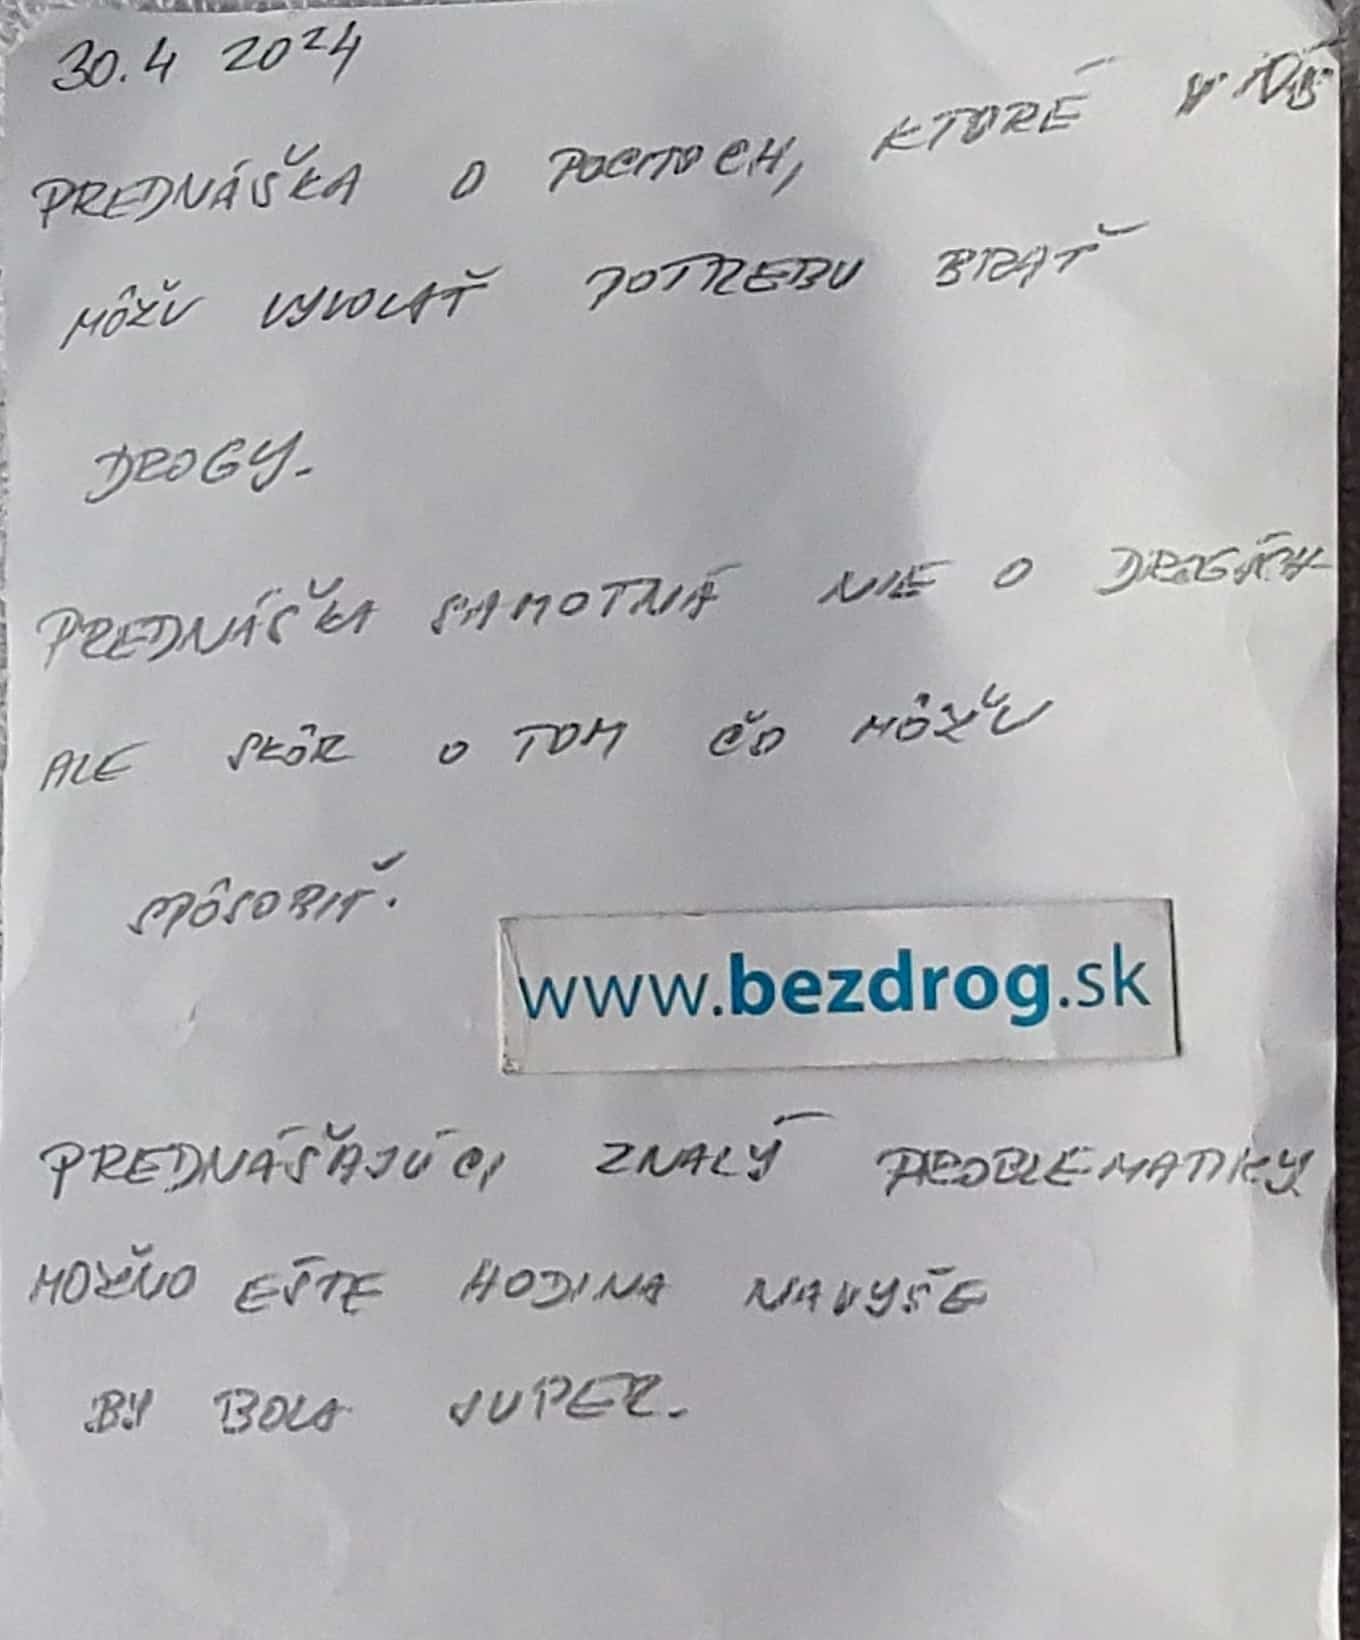 30.4 2024
PREDNÁŠKA O POCITOCH, KTORÉ V
MÔŽU VYVOLAŤ POTREBU BRAŤ
DROGY.
PREDNÁŠKA SAMOTNÁ NIE O DROGÁCH
ALE SKÔR O TOM ČO MÔŽU
SPÔSOBIŤ.
www.bezdrog.sk
PREDNÁŠAJÚCI ZNALÝ PROBLEMATIKY
MOŽNO EŠTE HODINA NAVYŠE
BY BOLA SUPER.